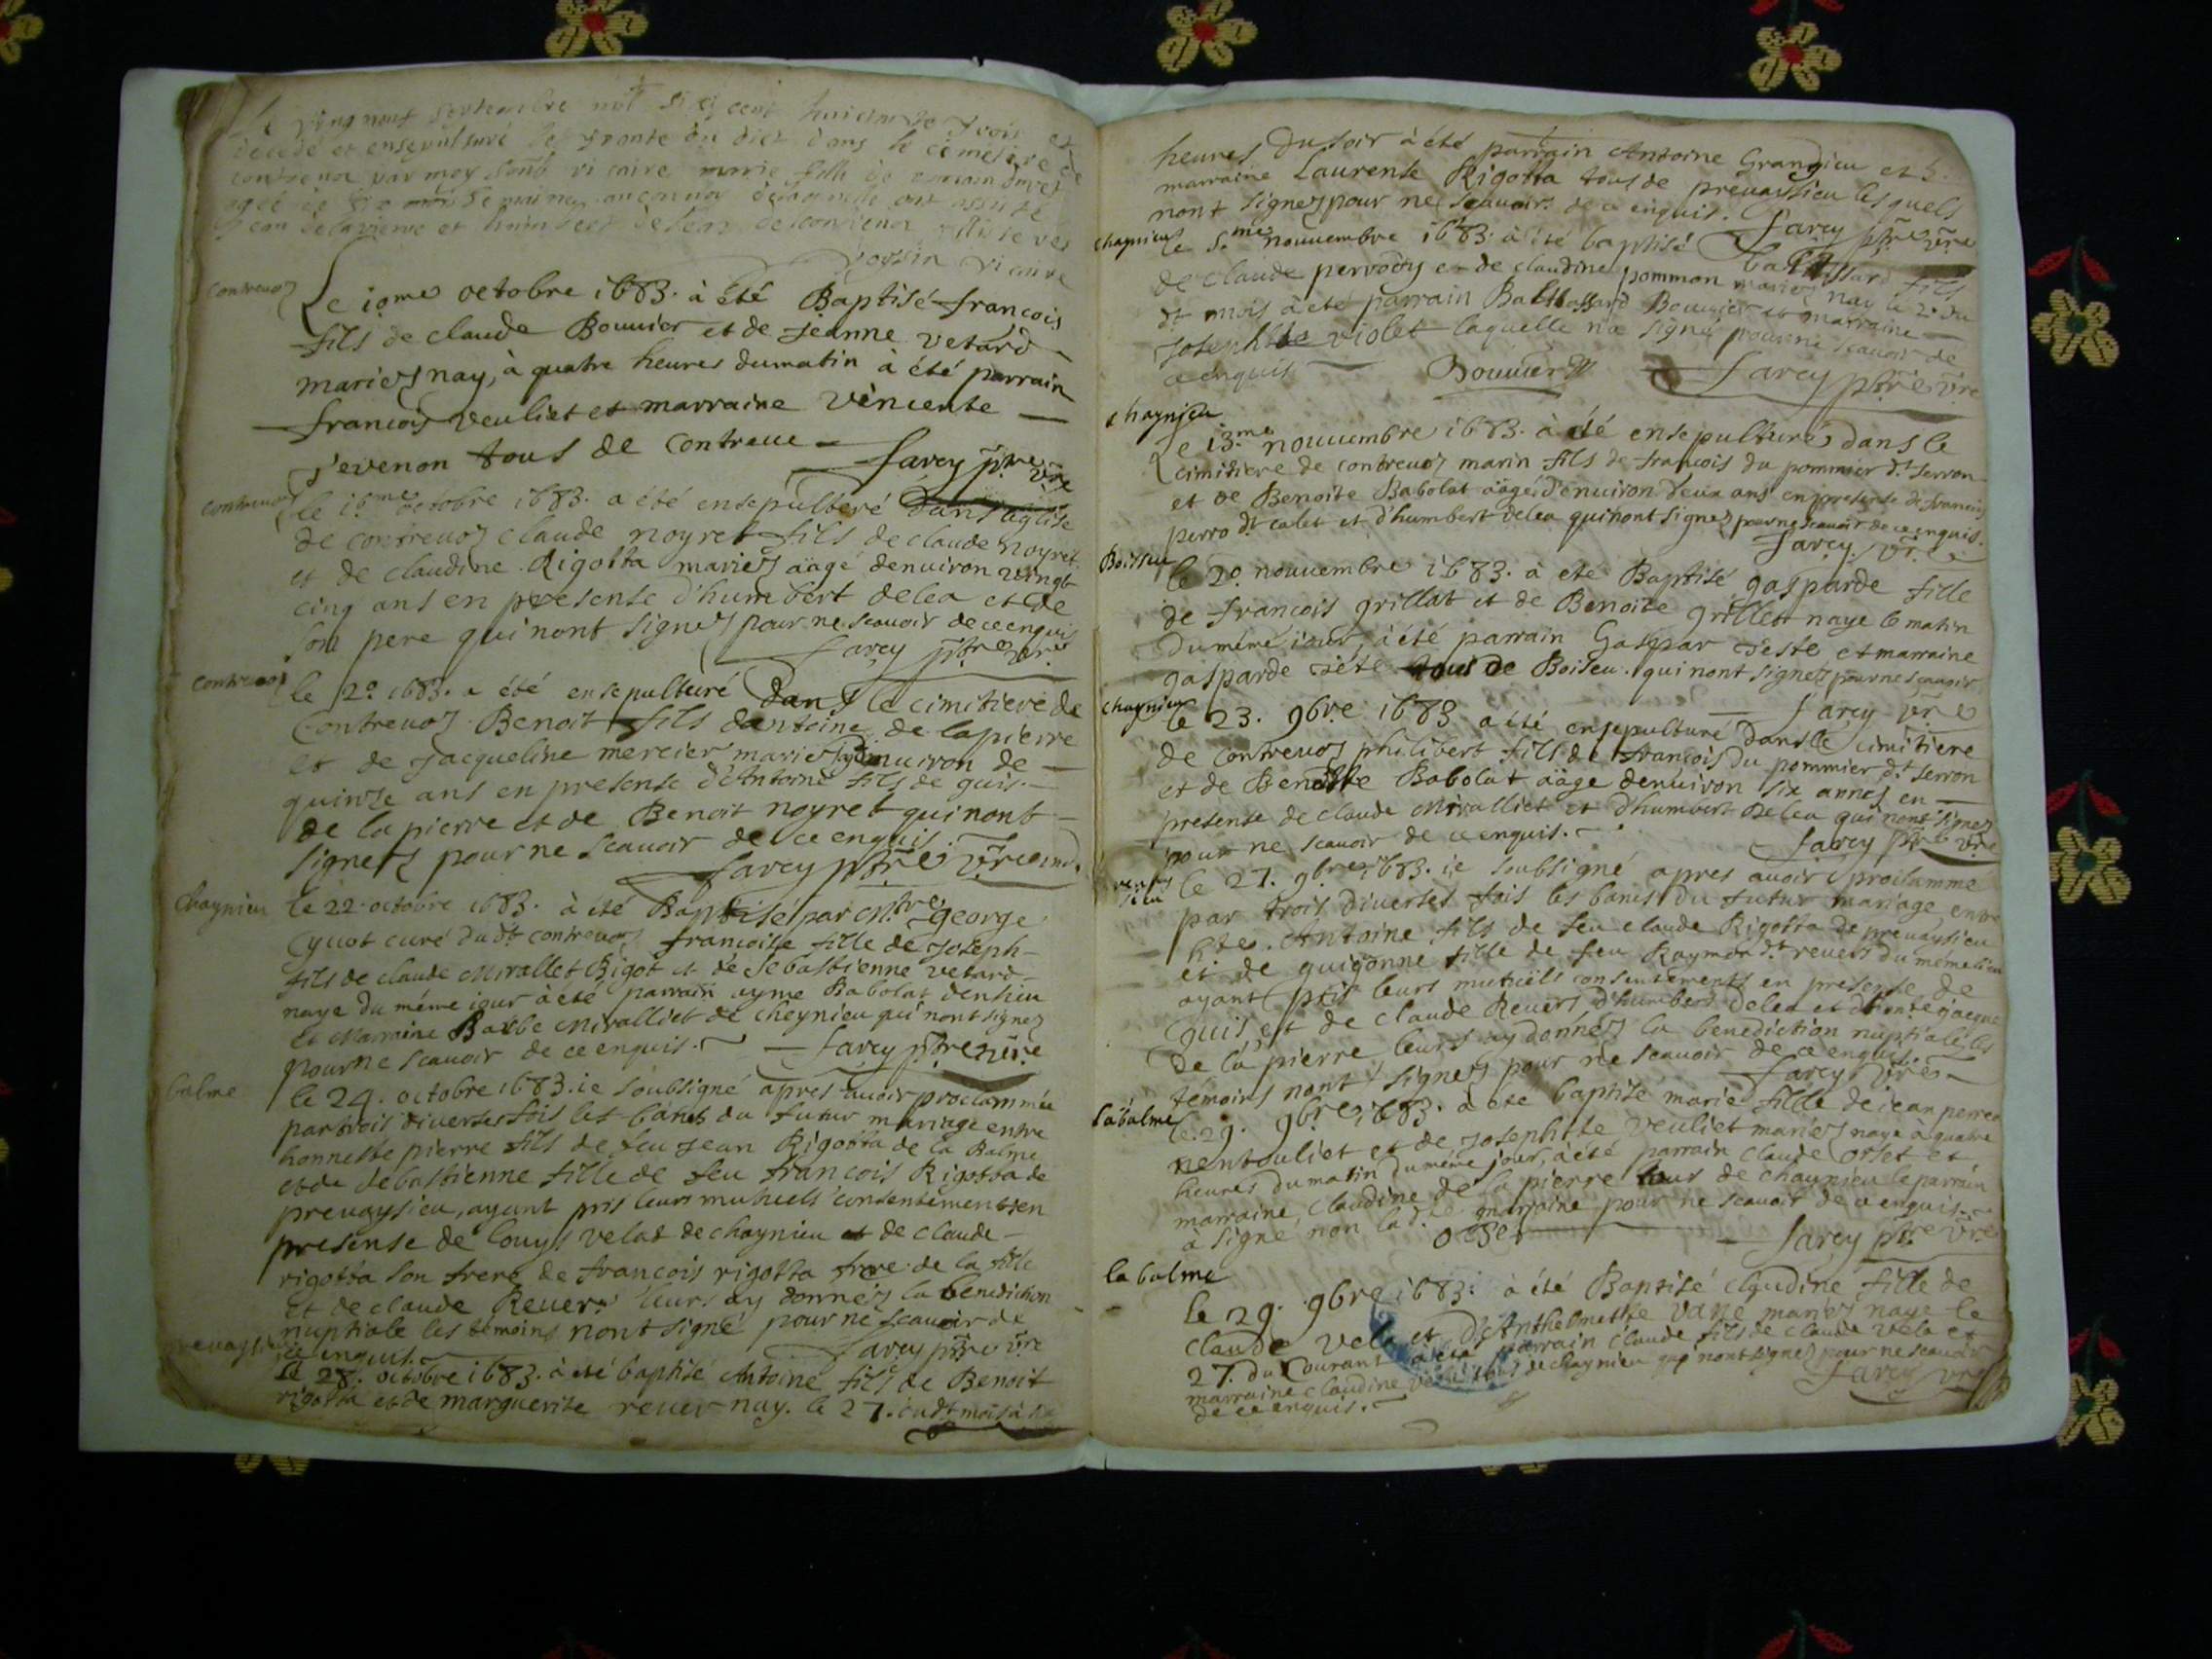 vingneuf septembre mil six cent huictante trois et
decede et ensepulturé le trante du dict dans le cemetiere de
contrevoz par moy soub vicaire marie fille de
agee de
Jean delapierre et humbert deleaz de contrevoz
vicaire
contrevoz
Le 10me octobre 1683. à été Baptisé francois
fils de claude Bouuier et de Jeanne vetard
mariez nay, à quatre heures dumatin à été parrain
francois veuliet et marraine vencente
Tevenon tous de contreue
farcy ptre vre
contrevoz
le 19me octobre 1683. a été ensepulturé dans léglise
de contrevoz claude noyret fils de claude noyret
et de claudine Rigotta mariez aagé denuiron vingt
cinq ans en presense d'humbert delea et de
son pere qui nont signez pour ne scauoir de ce enquis
farcy ptre vre
contrevoz
le 20 1683. a été ensepulturé dans le cimitiere de
Contreuoz Benoit fils dantoine de lapierre
et de Jacqueline mercier mariez agé denuiron de
quinze ans en presense d'Antoine fils de guis.
de lapierre et de Benoit noyret qui nont
signez pour ne scauoir de ce enquis.
farcy ptre vre
Chaynieu
le 22 octobre 1683. à été Baptisé par Mre george
Cyuot curé dudt contreuoz francoise fille de Joseph
fils de claude Mirallet Bigot et de Sebastienne vetard
naye du méme iour à été parrain ayme Babolat
et Marraine Barbe Miralliet de cheynieu qui nont signez
pour ne scauoir de ce enquis.
farcy ptre vre
balme
le 24. octobre 1683. ie soubsigné apres auoir proclammée
par trois diuerses fois les banes du futur mariage entre
honneste pierre fils de feu Jean Rigotta de la Balme
et de Sebastienne fille de feu francois Rigotta de
preuaysieu, ayant pris leurs mutuels consentement en
presense de louys velat de chaynieu et de claude
rigotta son frere de francois rigotta frere de la fille
et de claude Reuers leurs ay donnez la benediction
nuptiale les temoins nont signé pour ne scauoir de
ce enquis.
farcy ptre vre
preuaysieu
le 28. octobre 1683. à été baptisé Antoine fils de Benoit
rigotta et de marguerite reuer nay. le 27. dudt mois à
heures du soir à été parrain Antoine Grandieu et
marraine Laurense Rigotta tous de preuaysieu lesquels
nont signez pour ne scauoir de ce enquis.
farcy ptre vre
chaynieu
le 5.me nouuembre 1683. à été baptisé baltassard fils
de claude perrody et de claudine pommon mariez nay le 2. du
dt mois à été parrain Balthassard Bouuier et marraine
Josephte violet laquelle na signé pour ne scauoir de
ce enquis
Bouuier
farcy ptre vre
chaynieu
Le 13.me nouuembre 1683. à été ensepulturé dans le
cimitiere de contreuoz marin fils de francois du pommier dt serron
et de Benoite Babolat aagé d'enuiron deux ans en presense de francois
perro dt calet et d'humbert delea qui nont signez pour ne scauoir de ce enquis.
farcy vre
Boissieu
le 20 nouuembre 1683. à eté Baptisé gasparde fille
de francois grillat et de Benoite grillet naye le matin
du méme iour, à été parrain Gaspar Jeste et marraine
gasparde Jéte tous de Boiseu. qui nont signez pour ne scauoir
farcy vre
chaynieu
le 23. 9bre 1683 a été ensepulturé dans le cimitiere
de contreuoz philibert fils de francois du pommier dt serron
et de Benoitte Babolat aage denuiron six annes en
presense de claude Miralliet et d'humbert delea qui nont signez
pour ne scauoir de ce enquis.
farcy ptre vre
le 27. 9bre 1683. ie soubsigné apres auoir proclammé
par trois diuerses fois les banes du futur mariage entre
hte. Antoine fils de feu claude Rigotta de preuaysieu
et de guigonne fille de feu Raymon dt reuers du méme lieu
ayant pris leurs mutuels consentements en presense de
guis, et de claude Reuers d'humbert delea et
de la pierre leurs ay donnez la benediction nuptiale les
témoins nont signez pour ne scauoir de ce enquis.
farcy vre
labalme
le 29. 9bre 1683. à été baptisé marie fille de iean perret
nentouliet et de Josephte veuliet mariez naye à quatre
heures du matin du méme jour, à été parrain claude orset et
marraine claudine de la pierre tous de chaynieu le parrain
à signé non lad.te marraine pour ne scauoir de ce enquis.
orset
farcy ptre vre
la balme
le 29. 9bre 1683. à été Baptisé claudine fille de
claude vela et d'Anthelmette mariez naye le
27. du Courant à été parrain claude fils de claude vela et
marraine claudine de chaynieu qui nont signez pour ne scauoir
de ce enquis.
farcy vre